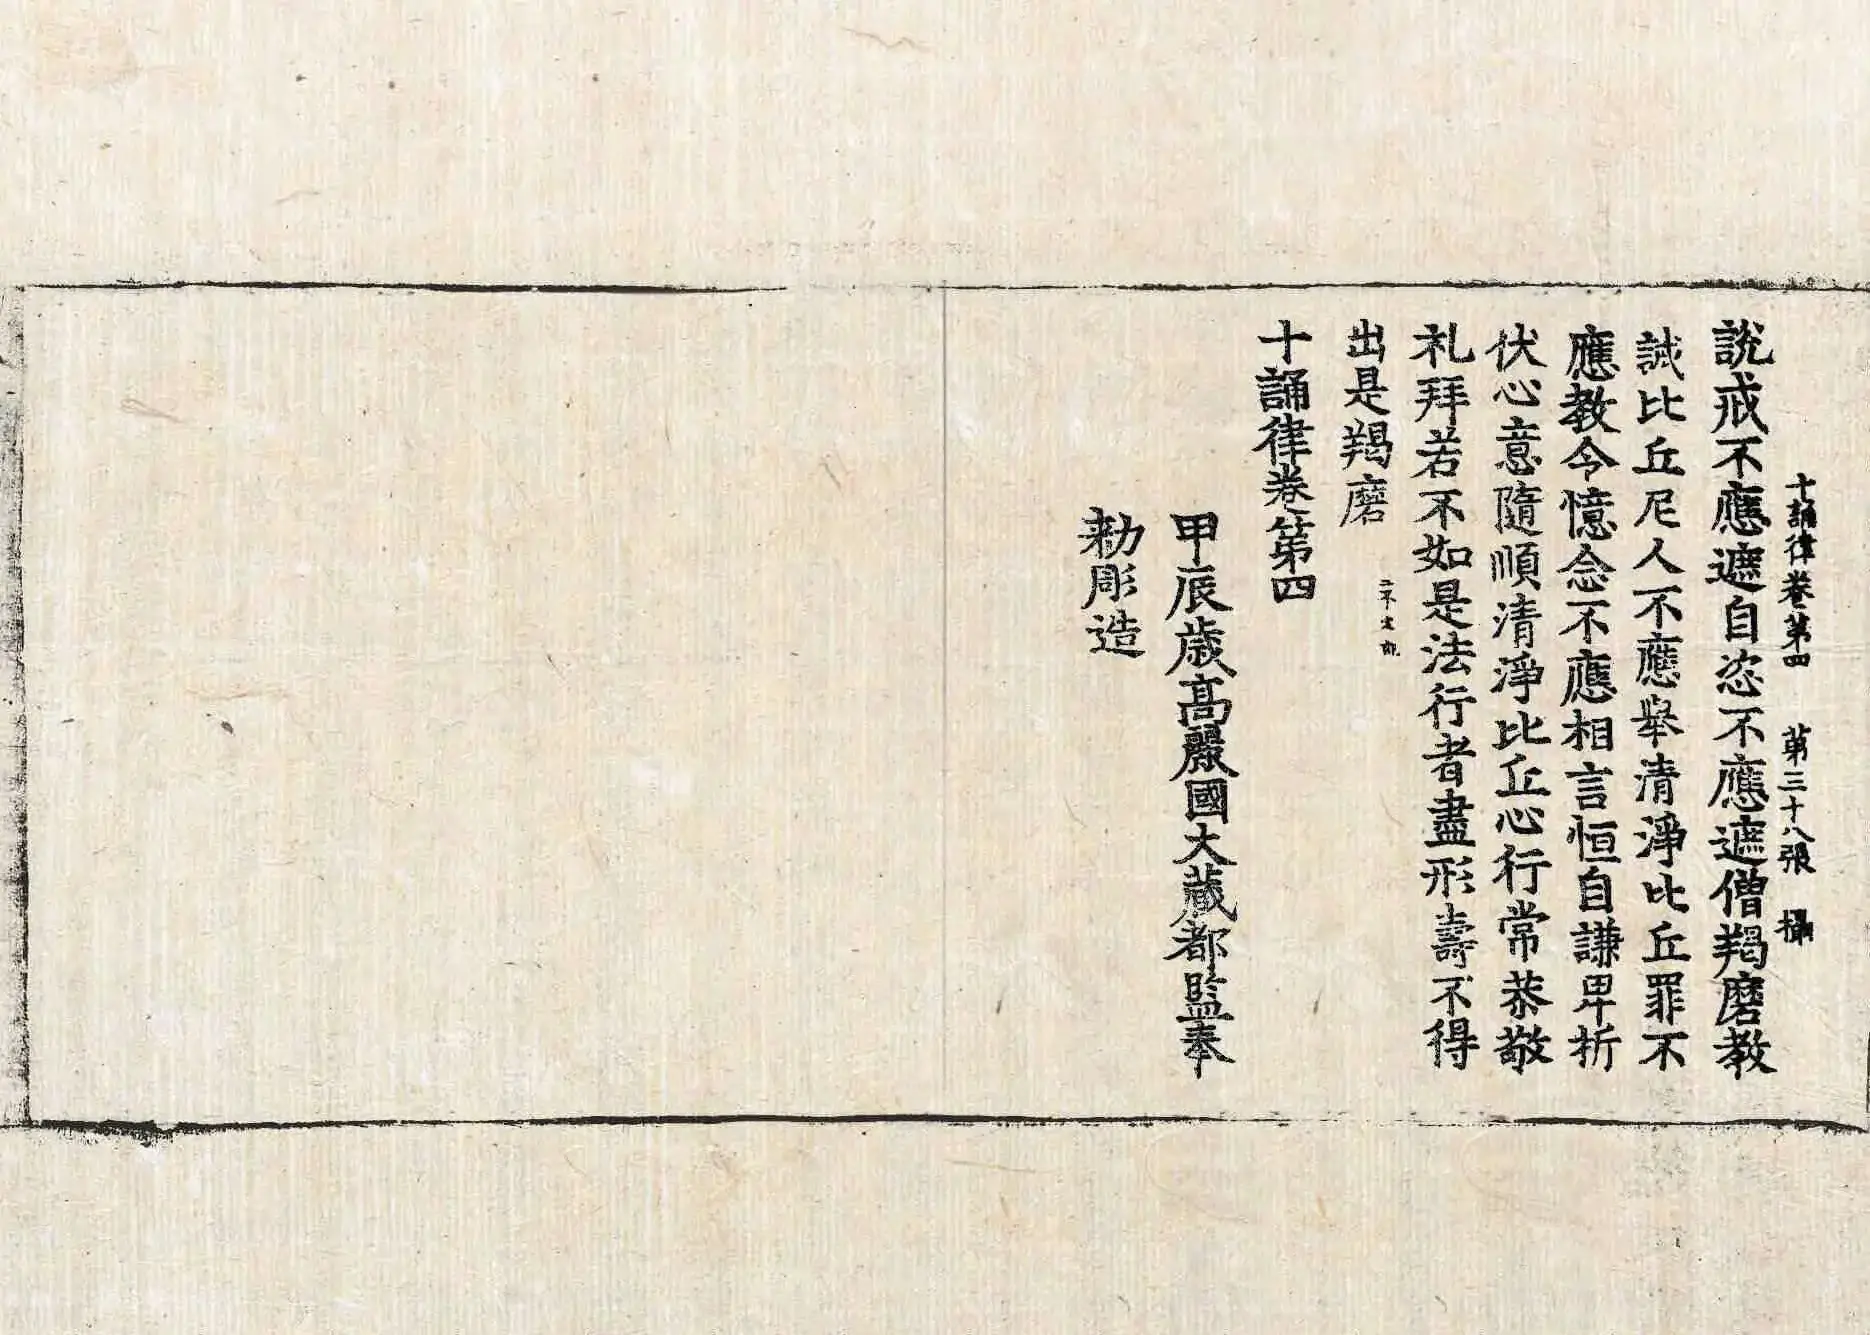 十誦律卷第四　第三十八張　攝
說戒不應遮自恣不應遮僧羯磨教
誡比丘尼人不應舉清淨比丘罪不
應教令憶念不應相言恒自謙卑折
伏心意隨順清淨比丘心行常恭敬
礼拜若不如是法行者盡形壽不得
出是羯磨
十誦律卷第四
甲辰歲高麗國大藏都監奉
勑彫造